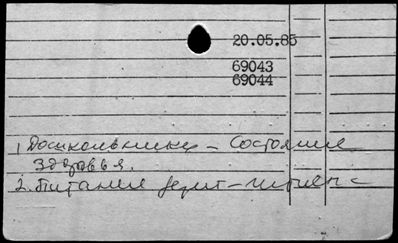 20.05.85
69043
69044
1. Дошкольники – Состояние
здоровья.
2. Питание дет –